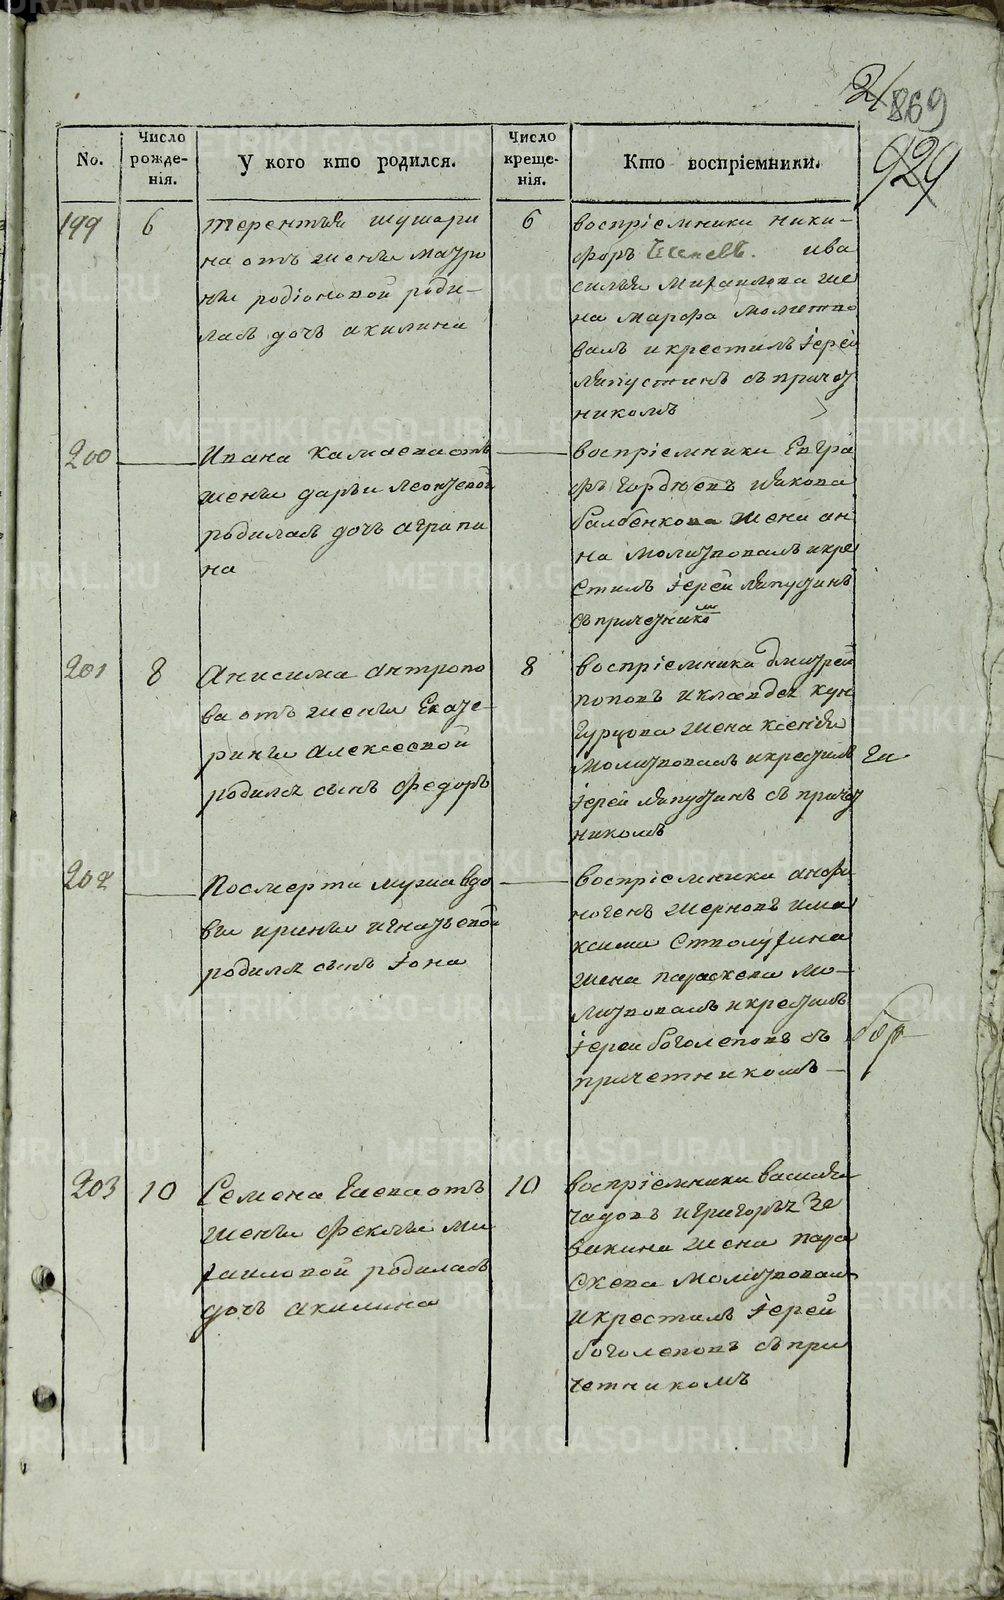 2/
869
929
No.
Число рожде-нія.
У кого кто родился.
Число креще-нія.
Кто воспріемники.
199
6
терентья шушари
на отъ жены матро
ны родіоновой роди-
лась дочь акилина
6
воспріемники ники-
форъ ива
силья михаилова же
на марфа молитво
валъ и крестилъ іерей
лапустинъ съ причет
никомъ
200
Ивана Камаева отъ
жены дарьи леонтевой
родилась дочь агрипи
на
воспріемники Евгра
фъ гордѣевъ иякова
балбенкова жена ан
на молитвовалъ и кре
стилъ іерей лапустинъ
съ причетникомъ
201
8
Анисима антропо
ва отъ жены Екате-
рины алексеевой
родился сынъ федоръ
8
воспріемники дмитрей
поповъ и клавдея кун
гурцова жена ксенія
молитвовалъ и крестилъ
іерей лапустинъ съ причет
никомъ
202
Посмерти мужа вдо
вы ирины игнатьевой
родился сынъ іона
воспріемники анфи
ногенъ жерновъ и ма
ксима
жена параскева мо-
литвовалъ и крестилъ
іереи боголеповъ съ
причетникомъ
203
10
Семена Елева отъ
жены феклы ми
хаиловой родилась
дочь акилина
10
воспріемники василей
чадовъ и григорья Зе
вакина жена пара
скева молитвовалъ
и крестилъ іерей
боголеповъ съ при
четникомъ
METRIKI.GASO-URAL.RU